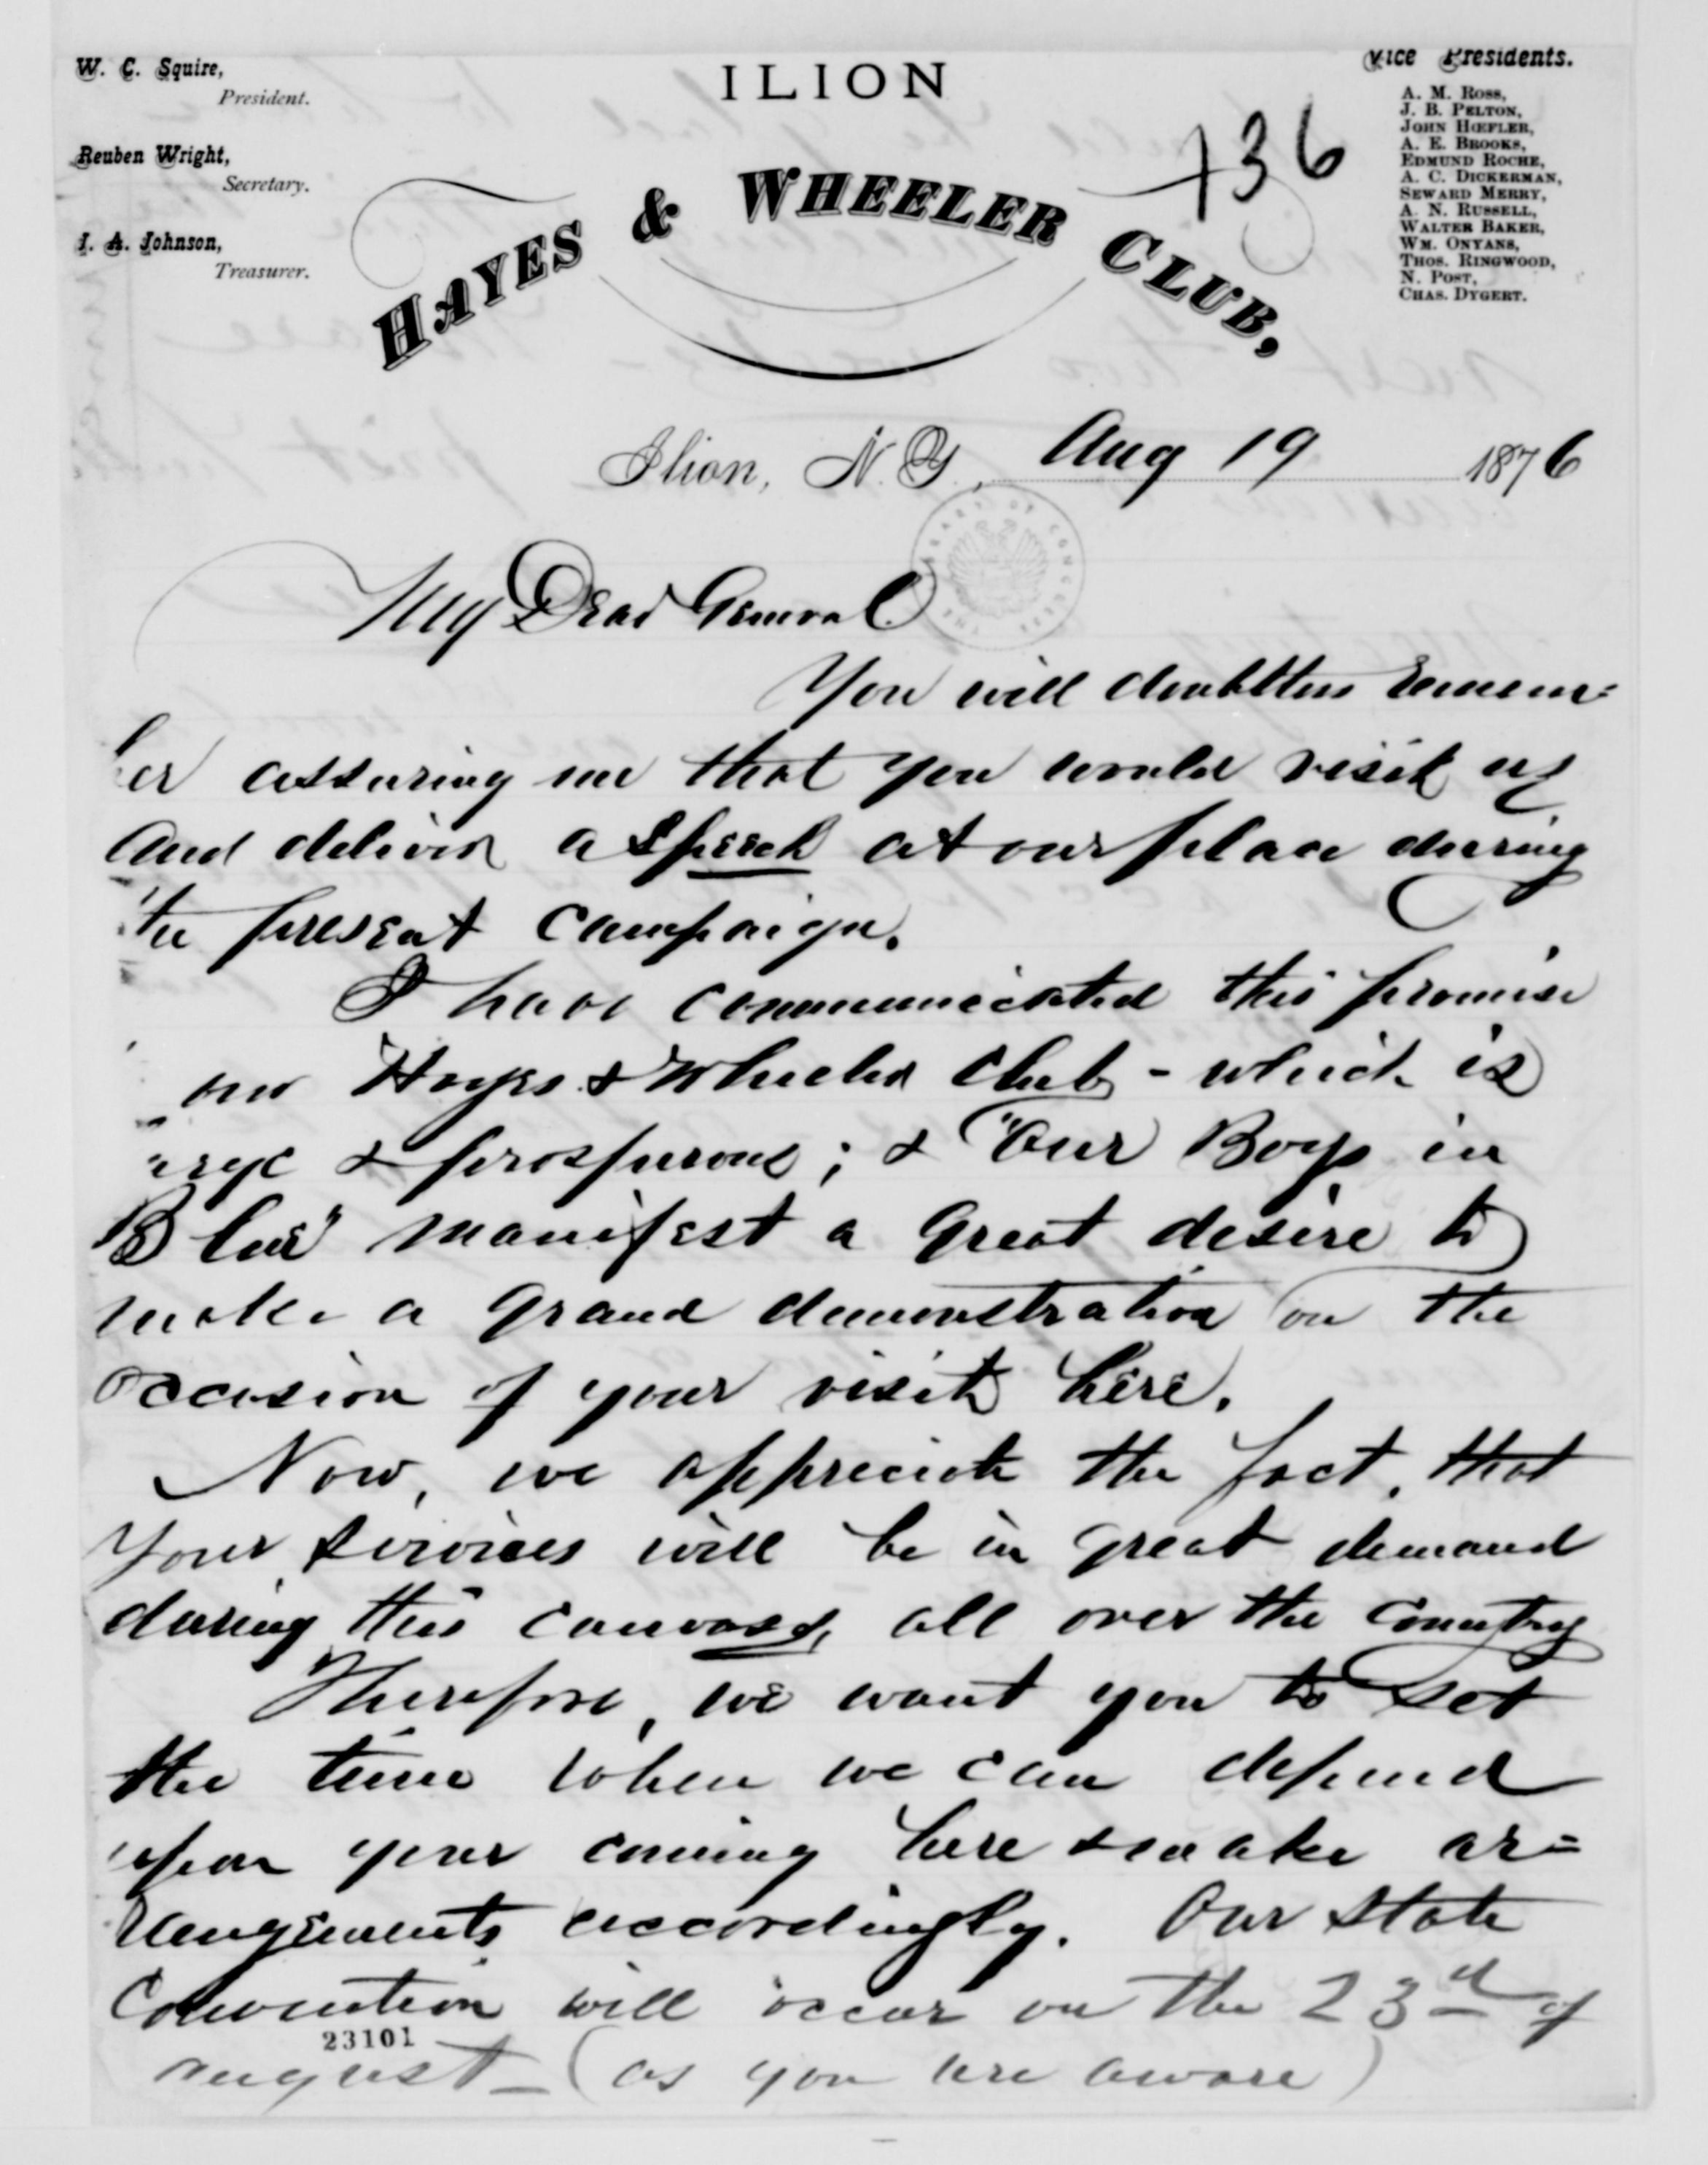 W. C. Squire,
President.
Reuben Wright,
Secretary.
I. A. Johnson,
Treasurer.
ILION
HAYES & WHEELER CLUB,
736
Vice Presidents.
A. M. Ross,
J. B. Pelton,
John Hœfler,
A. E. Brooks,
Edmund Roche,
A. C. Dickerman,
Seward Merry,
A. N. Russell,
Walter Baker,
Wm. Onyans,
Thos. Ringwood,
N. Post,
Chas. Dygert.
Ilion, N. Y., Aug 19 1876
My Dear General
You will doubtless remem=
ber assuring me that you would visit us
and deliver a speech at our place during
the present campaign.
I have communicated this promise
our Hayes & Wheeler Club - which is
arge & prosperous; & "Our Boys in
Blue" manifest a great desire to
make a grand demonstration on the
occasion of your visit here.
Now, we appreciate the fact, that
your services will be in great demand
during this canvass, all over the country
Therefore, we want you to set
the time when we can depend
upon your coming here & make ar=
rangements accordingly. Our State
Convention will occur on the 23d of
23101
august - (as you are aware)